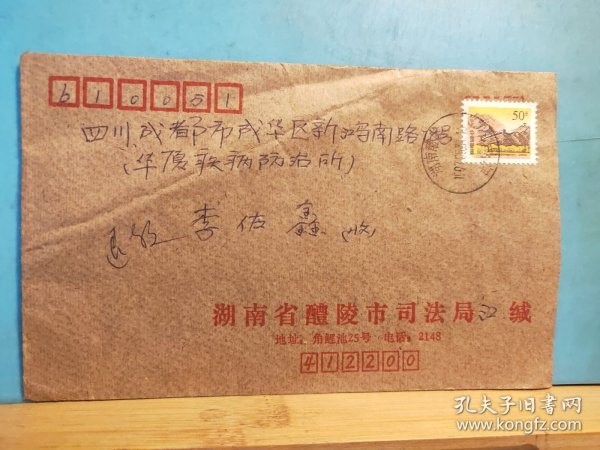 610051
四川成都市成华区新鸿南路 号
(华厦疾病防治所)
李佑鑫 (收)
50分
湖南省醴陵市司法局 江 缄
地址:角鲤池25号 电话:2148
412200
孔夫子旧书网
www.kongfz.com